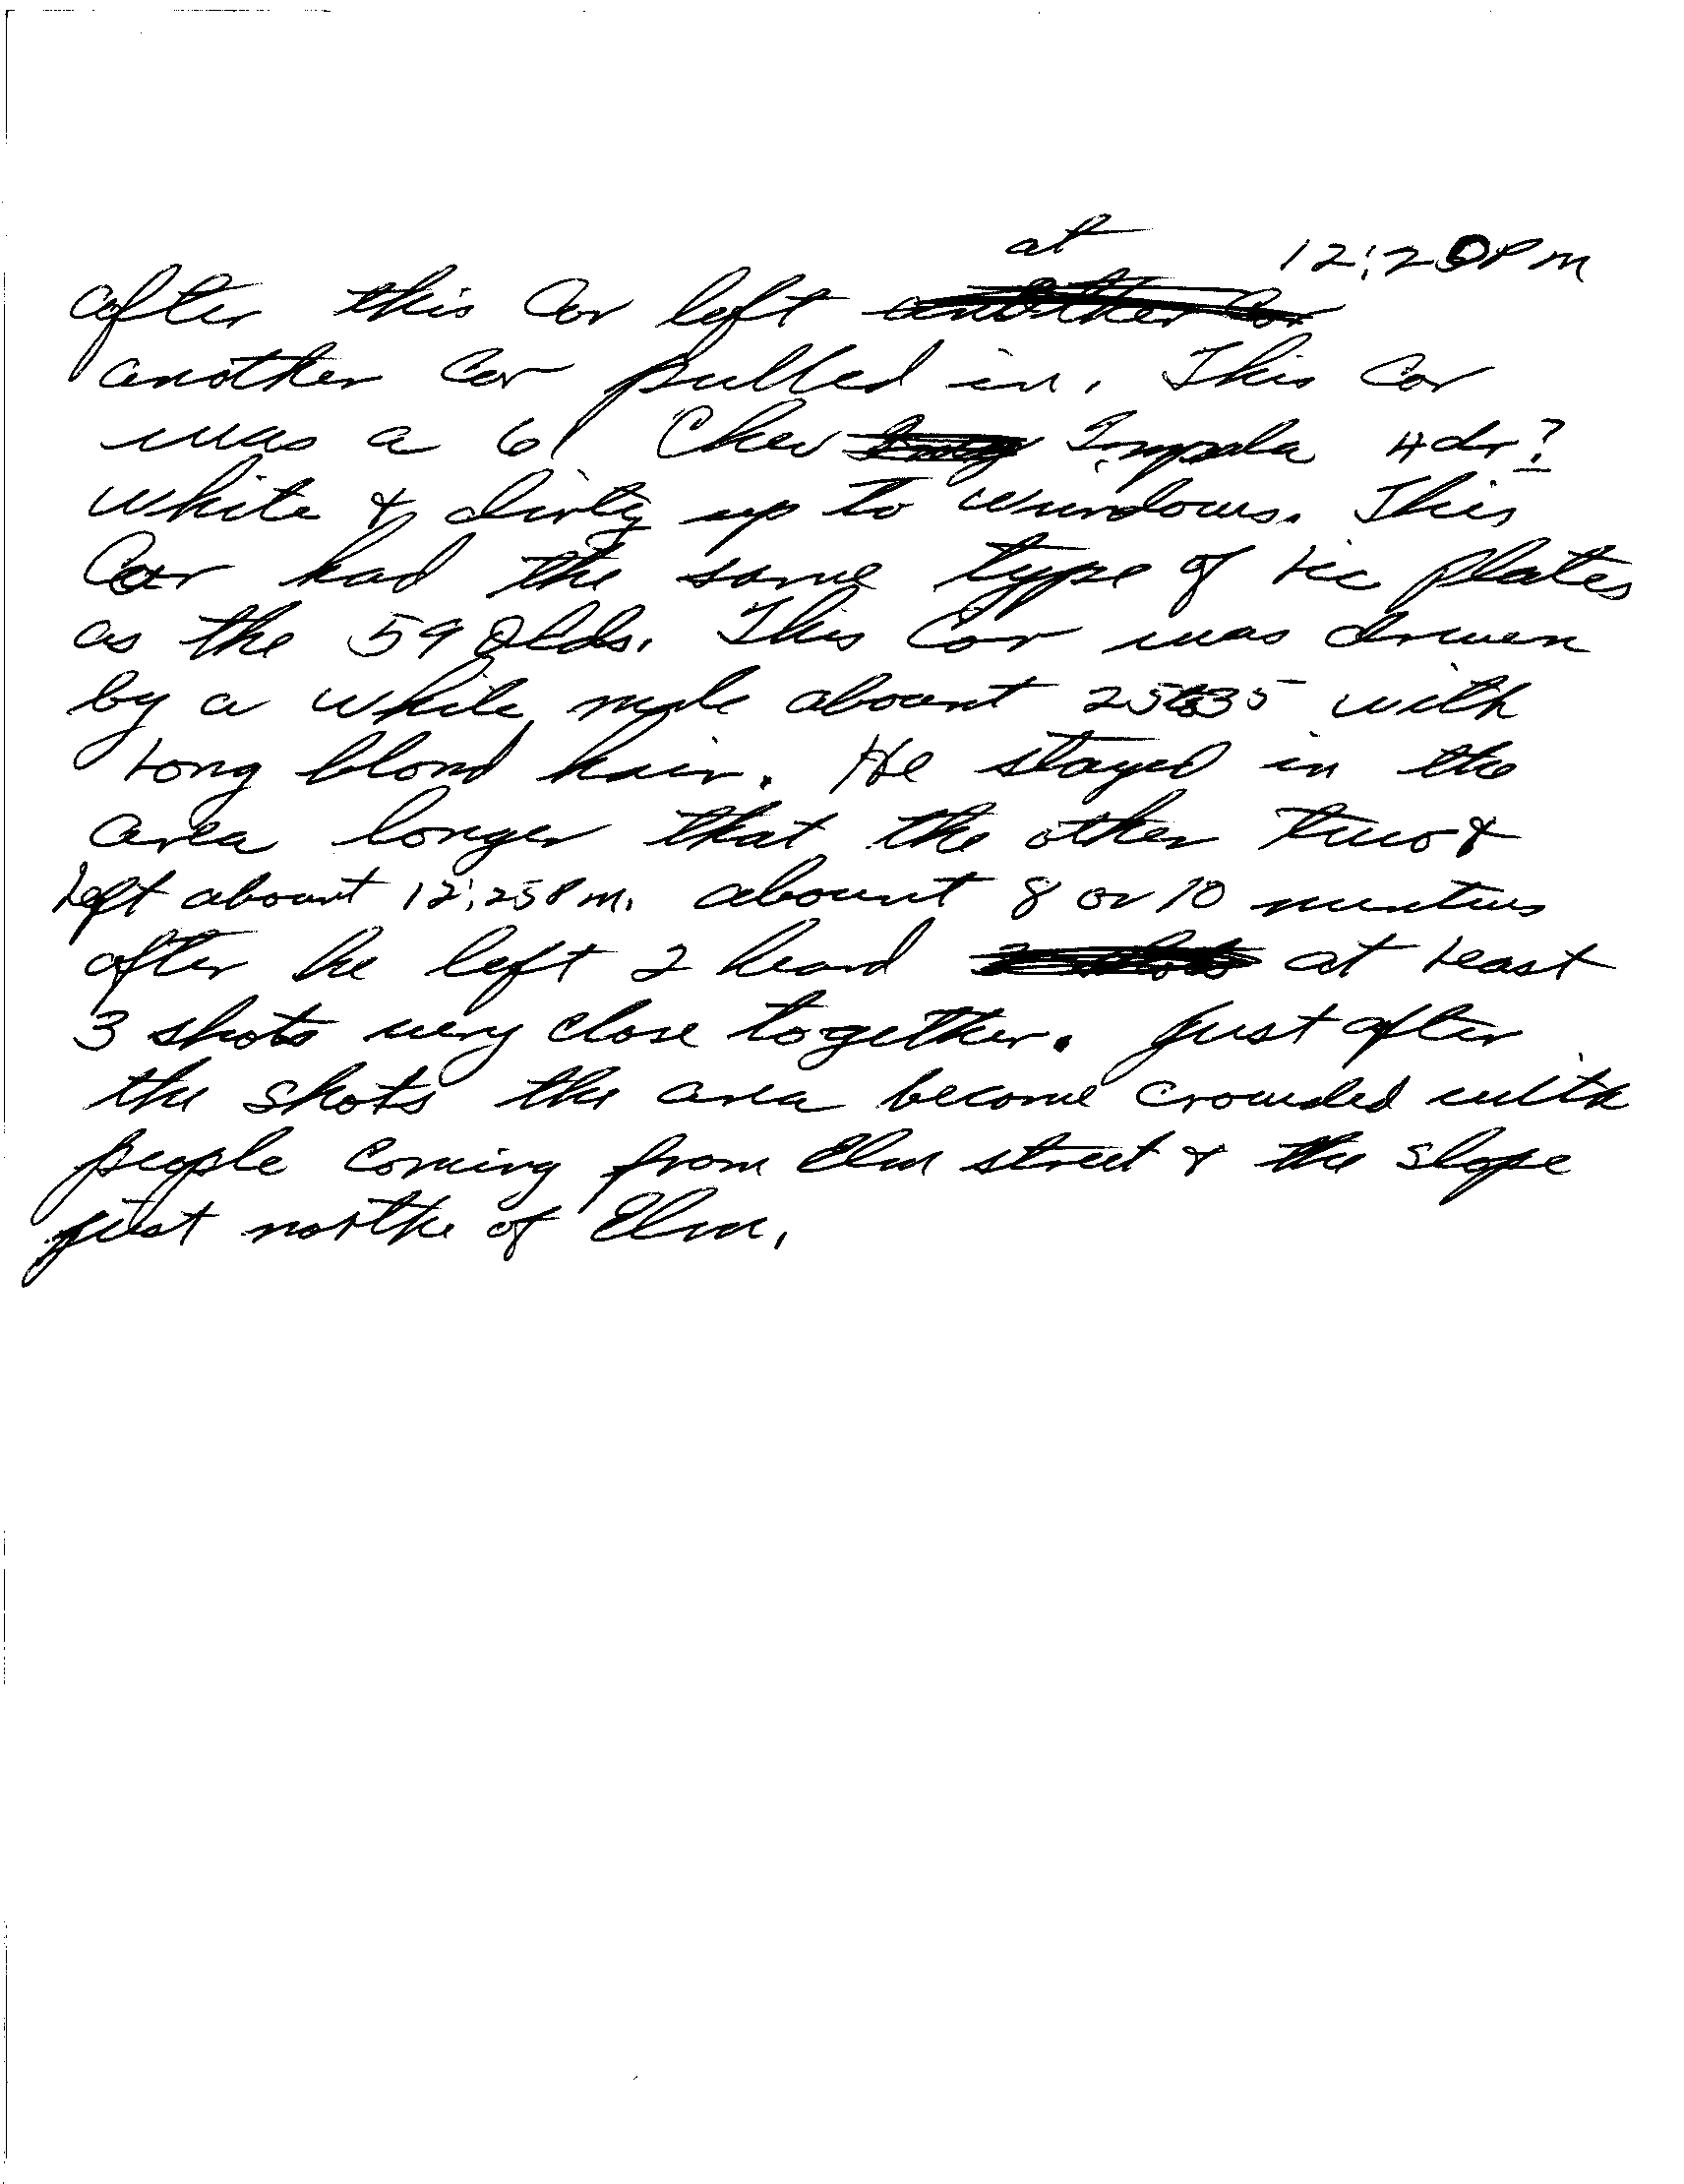 at 12:20PM
after this Car left another Car
another Car pulled in. This Car
was a 61 Chev Impala 4dr?
white & dirty up to windows. This
Car had the same type of Lic plates
as the 59 Olds. This Car was driven
by a white male about 25to35 with
Long blond hair. He stayed in the
area longer that the other two &
Left about 12:25PM. about 8 or 10 minutes
after he left I heard at Least
3 shots very close together. Just after
the shots the area become crowded with
people coming from Elm street & the slope
just northe of Elm.